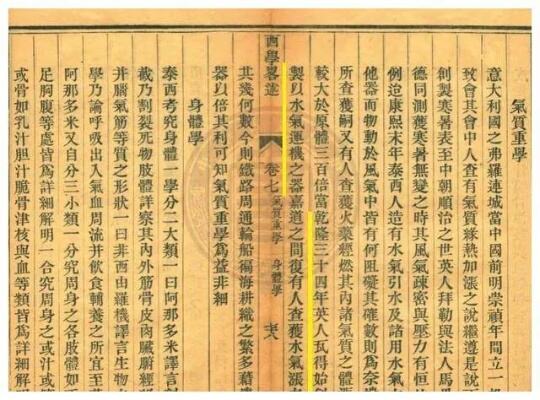 氣質重學
意大利國之弗羅連城當中國前明崇禎年間立一
致會其會中人查有氣質緣熱加漲之說繼遵是說
創製寒暑表至中朝順治之世英人拜勒與法人馬
德同測獲寒暑無變之時其風氣疎密與壓力有恒
例迨康熙末年泰西人造有水氣引水及諸用水氣
他器而物動於風氣中皆有何阻礙其確數則爲奈
所查獲嗣又有人查獲火藥經燃其內諸氣質之體
較大於原體三百倍當乾隆三十四年英人瓦得始
製以水氣運機之器嘉道之間復有人查獲水氣漲
其幾何數今則鐵路周通輪船獨海耕織之繁多藉
器以倍其利可知氣質重學爲益非細
西學畧述 卷七 氣質重學 身體學 六
身體學
泰西考究身體一學分二大類一曰阿那多米譯言
截乃割裂死物肢體詳察其內外筋骨皮肉臟腑經
并腦氣筋等質之形狀一曰非西由羅機譯言生物
學乃論呼吸出入氣血周流并飲食輔養之所宜至
阿那多米又自分三小類一分究周身之各肢體如
足胸腹等處皆爲詳細解明一合究周身之或汁或
或骨如乳汁胆汁脆骨津核與血等類皆爲詳細解